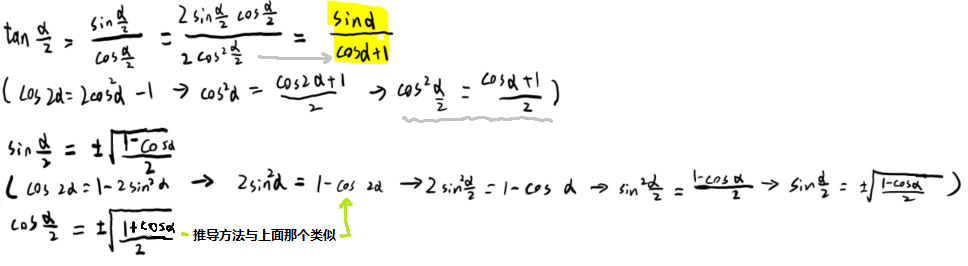 tan α/2 = sin α/2 / cos α/2 = 2 sin α/2 cos α/2 / 2 cos² α/2 = sinα / cosα+1
( cos 2α = 2cos²α - 1 → cos²α = cos2α+1 / 2 → cos² α/2 = cosα+1 / 2 )
sin α/2 = ±√(1-cosα / 2)
( cos 2α = 1 - 2 sin²α → 2 sin²α = 1 - cos 2α → 2 sin² α/2 = 1 - cos α → sin² α/2 = 1-cosα / 2 → sin α/2 = ±√(1-cosα / 2) )
cos α/2 = ±√(1+cosα / 2) - 推导方法与上面那个类似